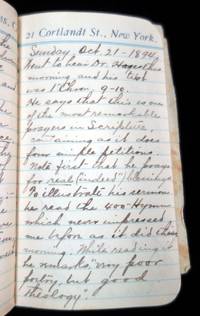 21 Cortlandt St., New York.
Sunday Oct. 21 - 1894
Went to hear Dr.
morning and his text
was 1 Chron. 4 9-10.
He says that this is one
of the most remarkable
prayers in Scripture
containing as it does
four ample petitions
Note first that he prays
for real (indeed) blessings
To illustrate his sermon
he read the 400 Hymn
which never impressed
me before as it did this
morning. While reading it
he remarks "very poor
poetry, but good
theology".